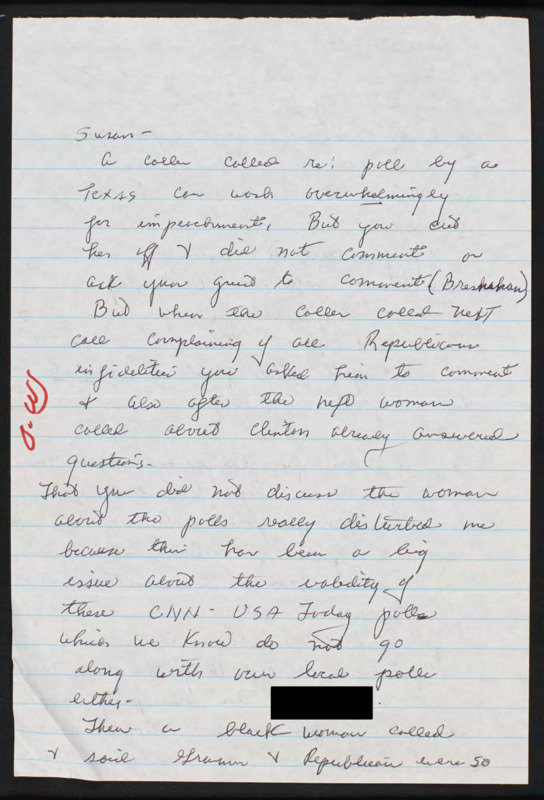 Susan -
A caller called re: poll by a
Texas can work overwhelmingly
for impeachment. But you cut
her off & did not comment or
ask your guest to comment (Breshahan)
But when the caller called next
call complaining of all Republican
infidelities you asked him to comment
& also after the next woman
called about Clinton already answered
questions.
That you did not discuss the woman
about the polls really disturbed me
because there has been a big
issue about the validity of
these CNN - USA Today polls
which we know do not go
along with our local polls
either -
Then a black woman called
& said & Republican were so